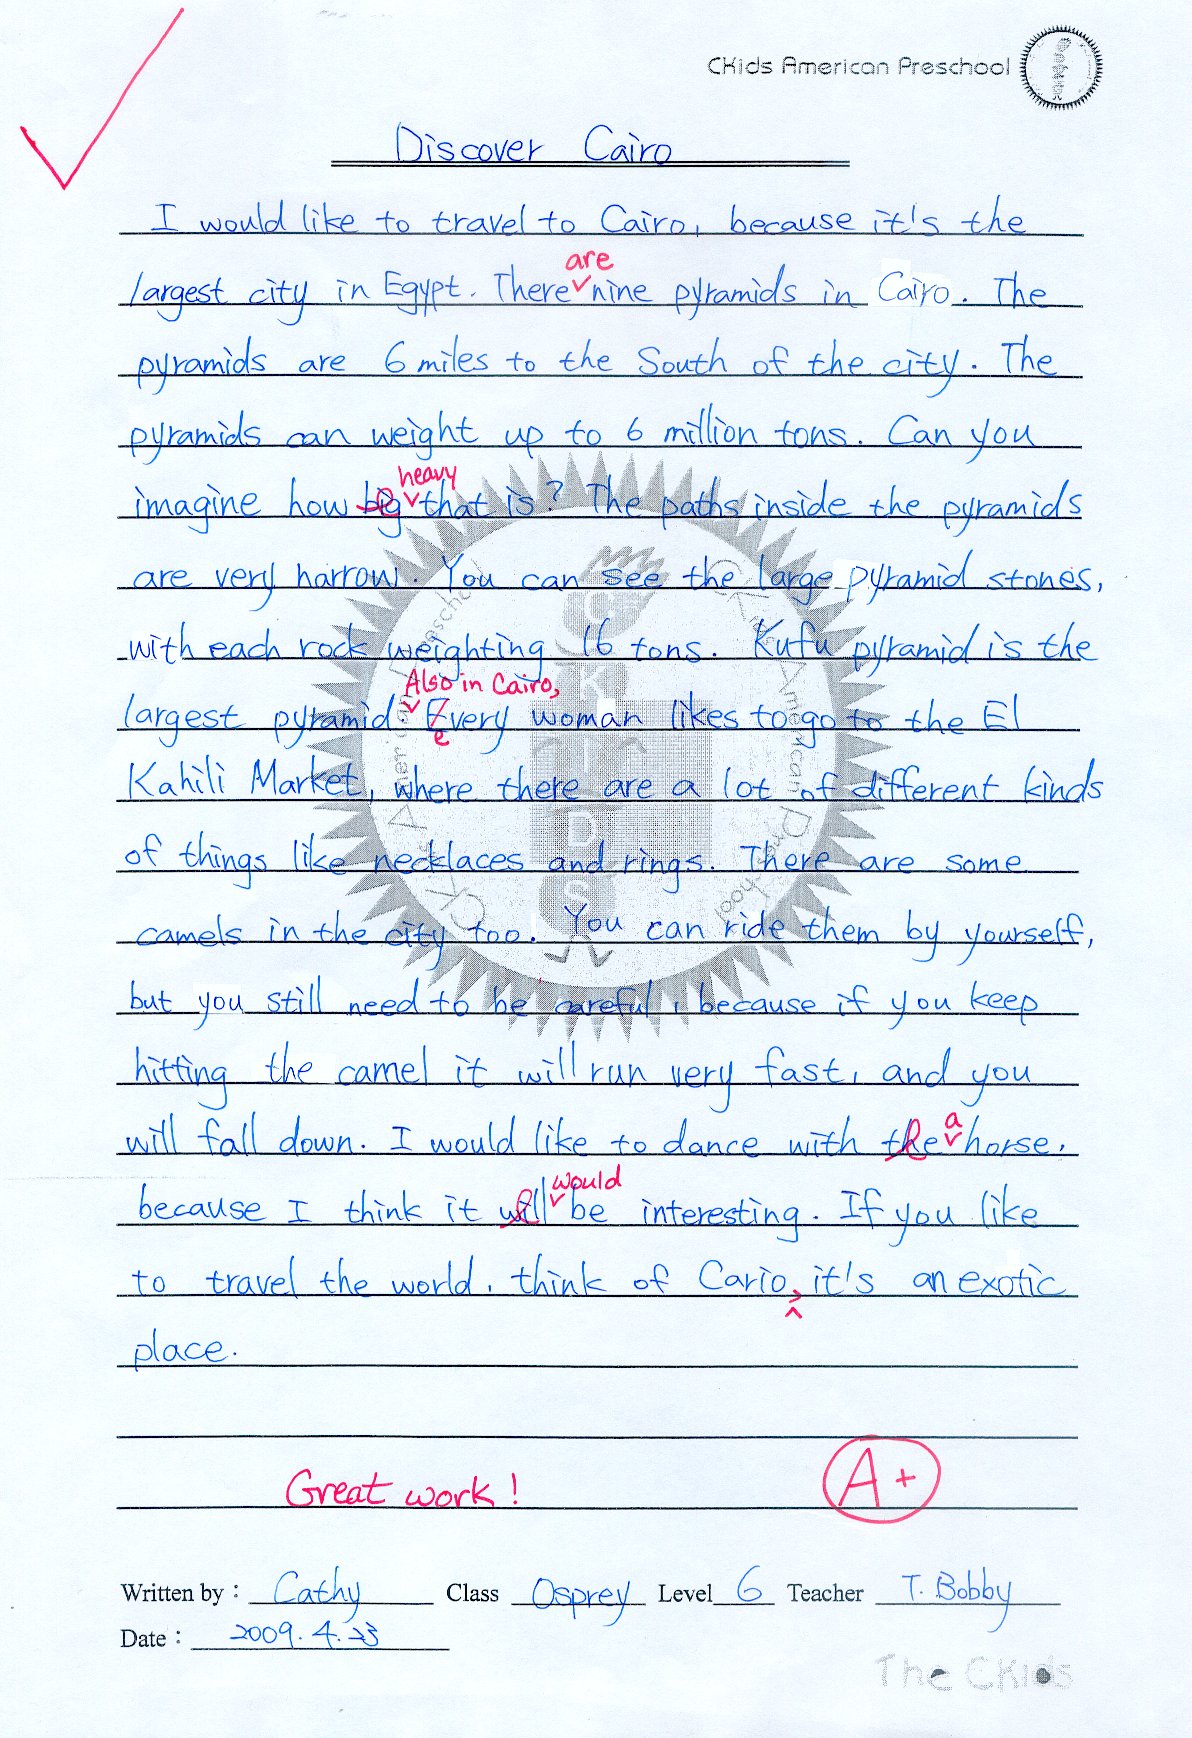 CKids American Preschool
Discover Cairo
I would like to travel to Cairo, because it's the
are
largest city in Egypt. There nine pyramids in Cairo. The
pyramids are 6 miles to the South of the city. The
pyramids can weight up to 6 million tons. Can you
heavy
imagine how big that is? The paths inside the pyramids
are very harrow. You can see the large pyramid stones,
with each rock weighting 16 tons. Kufu pyramid is the
Also in Cairo,
largest pyramid. Every woman likes to go to the El
e
Kahili Market, where there are a lot of different kinds
of things like necklaces and rings. There are some
camels in the city too. You can ride them by yourself,
but you still need to be careful, because if you keep
hitting the camel it will run very fast, and you
a
will fall down. I would like to dance with the horse,
would
because I think it will be interesting. If you like
to travel the world, think of Cario, it's an exotic
place.
Great work! A+
Written by: Cathy Class Osprey Level 6 Teacher T. Bobby
Date: 2009.4.23
The CKids